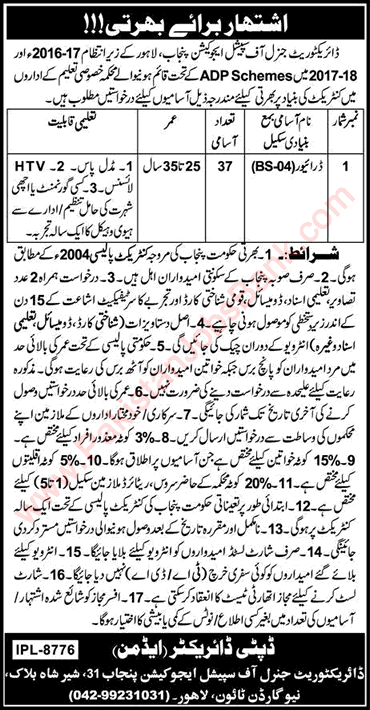 اشتہار برائے بھرتی!!!
ڈائریکٹوریٹ جنرل آف سپیشل ایجوکیشن پنجاب، لاہور کے زیر انتظام 17-2016ء اور
18-2017 میں ADP Schemes کے تحت قائم ہونیوالے محکمہ خصوصی تعلیم کے اداروں
میں کنٹریکٹ کی بنیاد پر بھرتی کیلئے مندرجہ ذیل آسامیوں کیلئے درخواستیں مطلوب ہیں۔
نمبر شمار نام آسامی بمع بنیادی سکیل تعداد آسامی عمر تعلیمی قابلیت
1 ڈرائیور (BS-04) 37 25 تا 35 سال 1۔ مڈل پاس۔ 2۔ HTV
لائسنس۔ 3۔ کسی گورنمنٹ یا اچھی
شہرت کی حامل تنظیم/ادارے سے
ہیوی وہیکل کا ایک سالہ تجربہ۔
شرائط:۔ 1۔ بھرتی حکومت پنجاب کی مروجہ کنٹریکٹ پالیسی 2004ء کے مطابق
ہوگی۔ 2۔ صرف صوبہ پنجاب کے سکونتی امیدواران اہل ہیں۔ 3۔ درخواست ہمراہ 2 عدد
تصاویر، تعلیمی اسناد، ڈومیسائل، قومی شناختی کارڈ اور تجربے کا سرٹیفکیٹ اشاعت کے 15 دن
کے اندر زیر دستخطی کو موصول ہونی چاہیے۔ 4۔ اصل دستاویزات (شناختی کارڈ، ڈومیسائل، تعلیمی
اسناد وغیرہ) انٹرویو کے دوران چیک کی جائیں گی۔ 5۔ حکومتی پالیسی کے تحت عمر کی بالائی حد
میں مرد امیدواران کو پانچ برس جبکہ خواتین امیدواران کو آٹھ برس کی رعایت ہوگی۔ مذکورہ
رعایت کیلئے علیحدہ سے درخواست دینے کی ضرورت نہیں۔ 6۔ عمر کی بالائی حد درخواستیں وصول
کرنے کی آخری تاریخ تک شمار کی جائیگی۔ 7۔ سرکاری/خود مختار اداروں کے ملازمین اپنے
محکموں کی وساطت سے درخواستیں ارسال کریں۔ 8۔ 3% کوٹہ معذور افراد کیلئے مختص ہے۔
9۔ 15% کوٹہ خواتین کیلئے مختص ہے جن آسامیوں پر اطلاق ہوگا۔ 10۔ 5% کوٹہ اقلیتوں
کیلئے مختص ہے۔ 11۔ 20% کوٹہ محکمہ کے حاضر سروس، ریٹائرڈ ملازمین سکیل (1 تا 5) کیلئے
مختص ہے۔ 12۔ ابتدائی طور پر تعیناتی حکومت پنجاب کی کنٹریکٹ پالیسی کے تحت ایک سالہ
کنٹریکٹ پر ہوگی۔ 13۔ نامکمل اور مقررہ تاریخ کے بعد وصول ہونیوالی درخواستیں مسترد کر دی
جائینگی۔ 14۔ صرف شارٹ لسٹڈ امیدواروں کو انٹرویو کیلئے بلایا جائیگا۔ 15۔ انٹرویو کیلئے
بلائے گئے امیدواروں کو کوئی سفری خرچ (ٹی اے/ڈی اے) نہیں دیا جائیگا۔ 16۔ شارٹ
لسٹ کرنے کیلئے مجاز اتھارٹی ٹیسٹ کا انعقاد کر سکتی ہے۔ 17۔ افسر مجاز کو شائع شدہ اشتہار/
آسامیوں کی تعداد میں بغیر کسی اطلاع/نوٹس کے کمی یا بیشی کا اختیار ہوگا۔
ڈپٹی ڈائریکٹر (ایڈمن)
IPL-8776
ڈائریکٹوریٹ جنرل آف سپیشل ایجوکیشن پنجاب 31، شیر شاہ بلاک،
نیو گارڈن ٹاؤن، لاہور۔ (042-99231031)